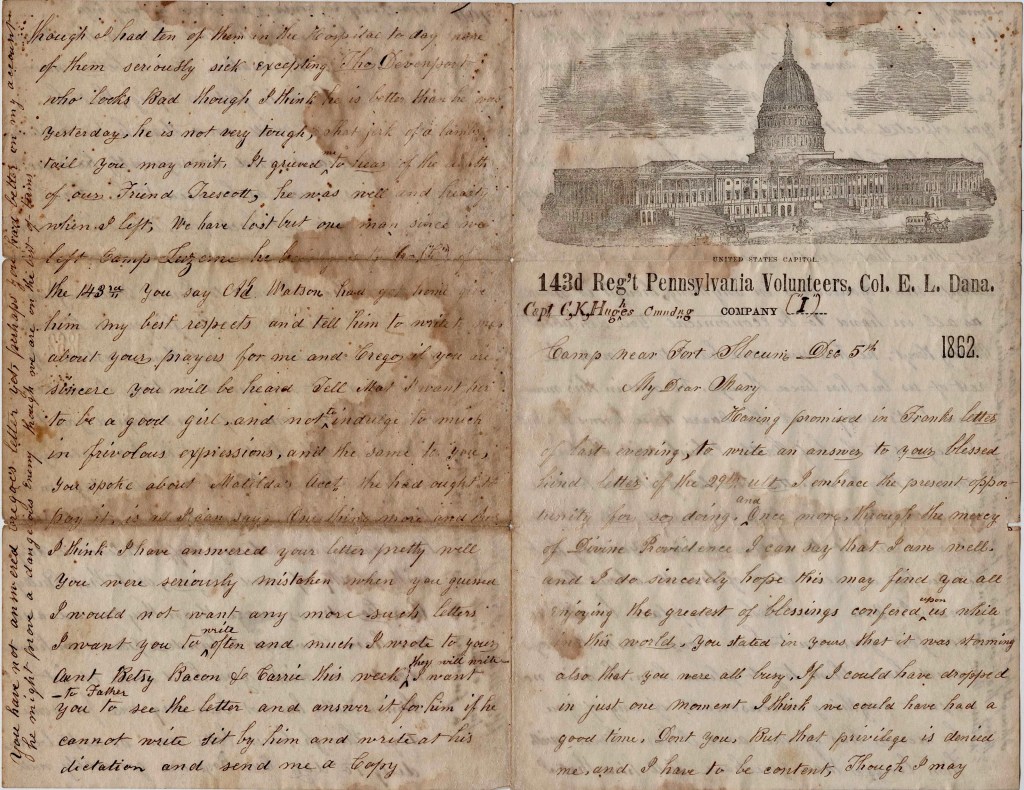 UNITED STATES CAPITOL.
143d Reg't Pennsylvania Volunteers, Col. E. L. Dana.
Capt C,K, Hughes Cmndng COMPANY (I)
Camp near Fort Slocum Dec 5th 1862.
My Dear Mary
Having promised in Franks letter
of last evening, to write an answer to your blessed
kind letter of the 29th ult I embrace the present oppor-
tunity for so doing, and Once more, through the mercy
of Divine Providence I can say that I am well.
and I do sincerely hope this may find you all
enjoying the greatest of blessings confered upon us while
in this world. You stated in yours that it was storming
also that you were all busy. If I could have dropped
in just one moment I think we could have had a
good time. Dont you. But that privilege is denied
me, and I have to be content, Though I may
though I had ten of them in the Hospital to day none
of them seriously sick excepting Davenport
who looks Bad though I think he is better than he was
yesterday, he is not very tough, that jerk of a lambs
tail you may omit. It grieved me to hear of the death
of our Friend Trescott, he was well and hearty
when I left, We have lost but one man since we
left Camp Luzerne he
the 143rd You say Watson had got home give
him my best respects and tell him to write me
about your prayers for me and Crego, if you are
sincere you will be heard Tell Mat I want her
to be a good girl, and not to indulge to much
in frivolous expressions, and the same to you,
You spoke about Matilda's
is all I can say. One thing more and then
I think I have answered your letter pretty well
You were seriously mistaken when you guessed
I would not want any more such letters
I want you to write often and much I wrote to your
Aunt Betsy Bacon & Carrie this week they will write
to Father I want
you to see the letter and answer it for him if he
cannot write sit by him and write at his
dictation and send me a Copy
You have not answered Cregoes letter yet, perhaps you had better on my account
he might prove a dangerous Enemy though we are on the best of terms